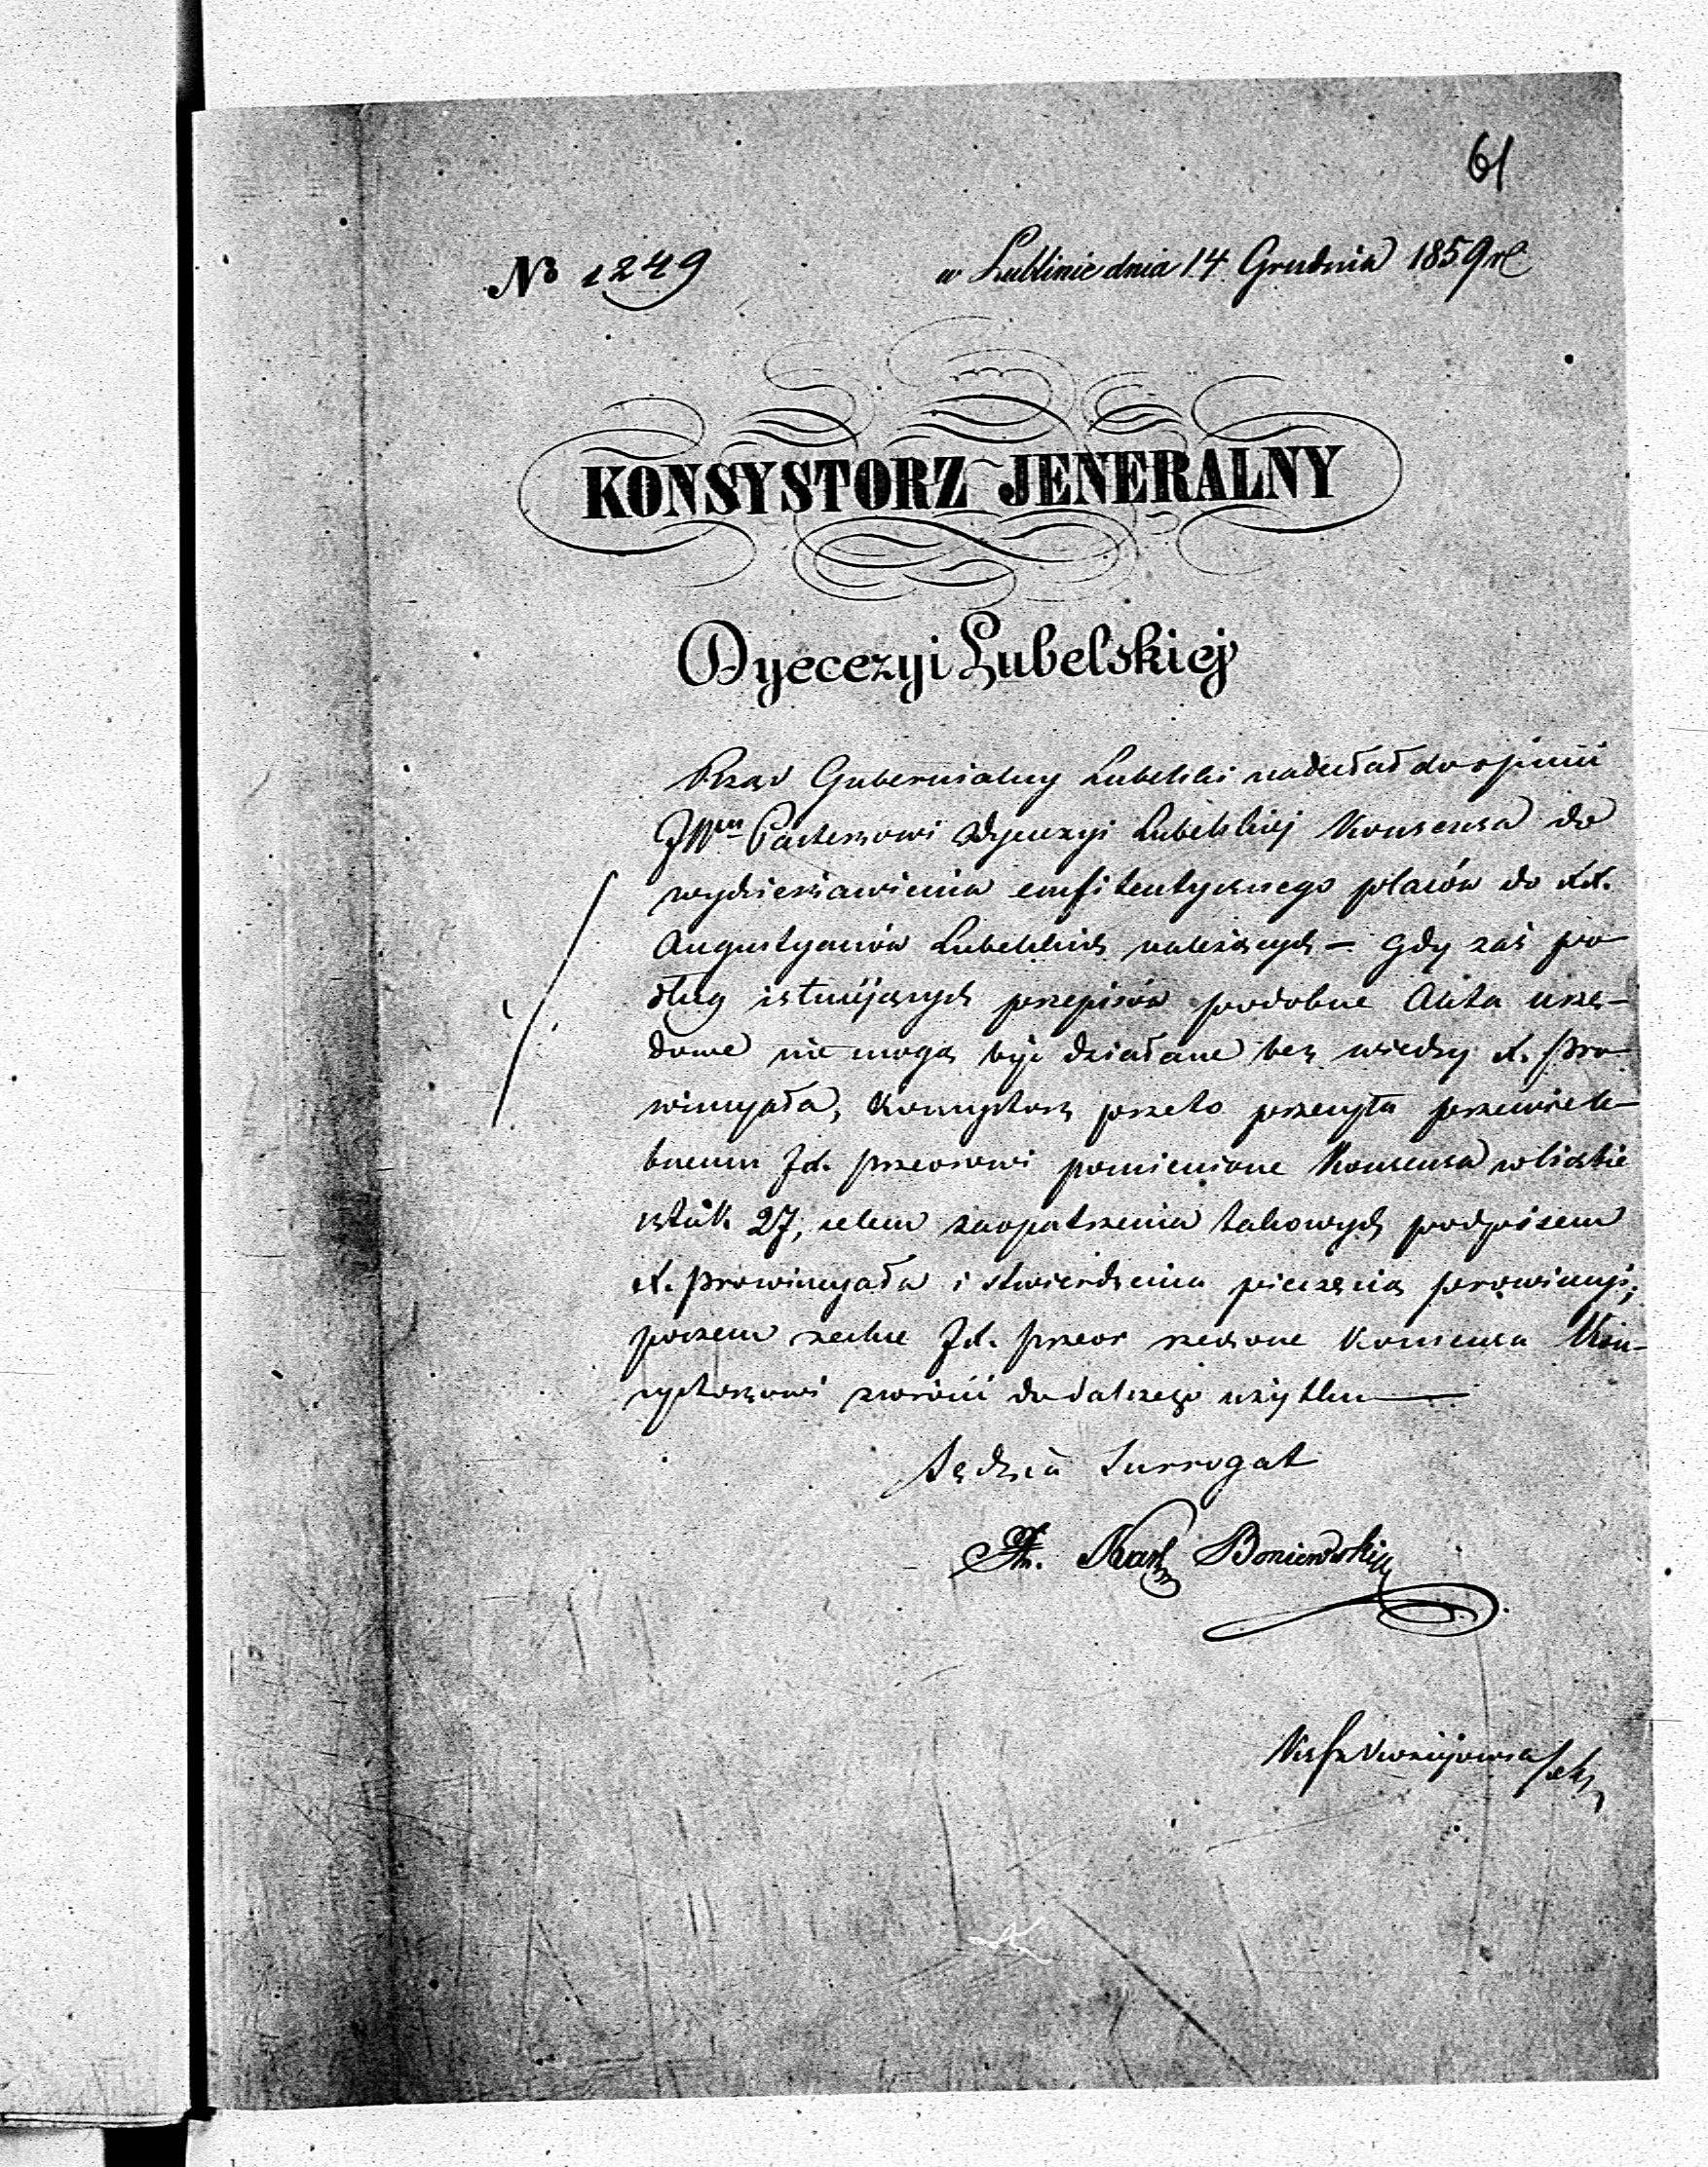 61
No 1249
w Lublinie dnia 14 Grudnia 1859 r
KONSYSTORZ JENERALNY
Dyecezyi Lubelskiej
Rząd Gubernialny Lubelski nadesłał do opinii
JWmu Pasterzowi Dyecezyi Lubelskiej Konsensa do
wydzierżawienia emfiteutycznego placów do XX.
Augustyanów Lubelskich należących – gdy zaś po
dług istniejących przepisów podobne Akta urzę–
dowe nie mogą być działane bez wiedzy X. Pro–
wincyała, Konsystorz przeto przesyła przewiele–
bnemu JX. Przeorowi pomienione Konsensa w liczbie
sztuk 27, celem zaopatrzenia takowych podpisem
X. Prowincyała i stwierdzenia pieczęcią prowincyi;
poczem zechce JX. Przeor rzeczone Konsensa Kon–
systorzowi zwrócić do dalszego użytku ——
Sędzia Surrogat
X. Boniewski